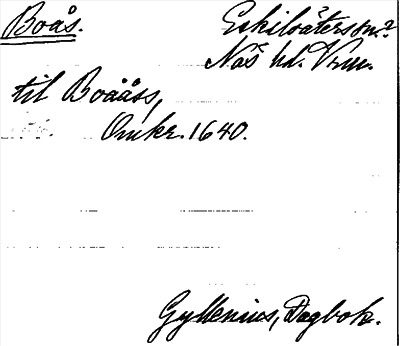 Boås. Eskilsäters sn.?
Näs hd. Vrml.
til Boååss,
Omkr. 1640.
Gyllenius, Dagbok.